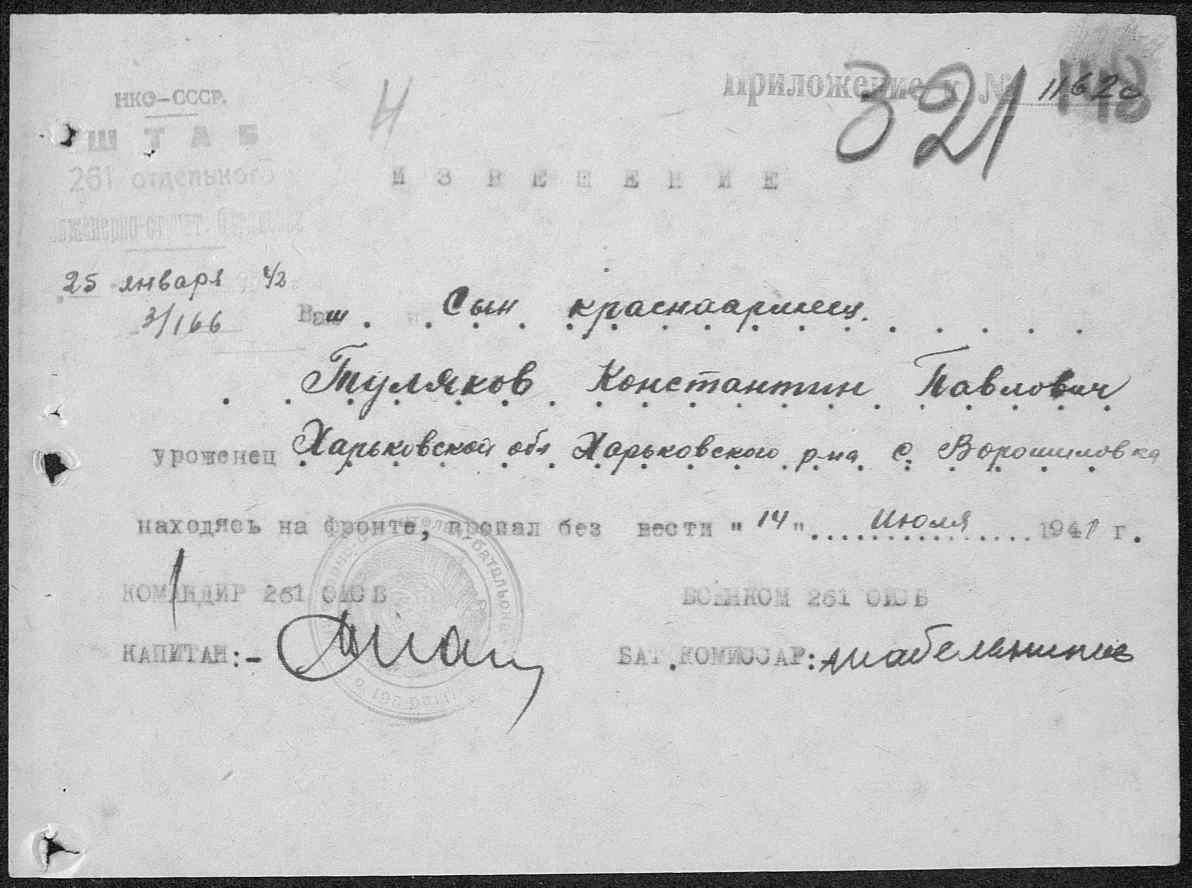 НКО-СССР.
Приложение к № 11620
Н
321
148
ШТАБ
261 отдельного
инженерно-
ИЗВЕЩЕНИЕ
25 января 42
3/166
Ваш. Сын красноармеец.
Туляков Константин Павлович
уроженец Харьковской обл Харьковского р-на с. Ворошиловка
находясь на фронте, пропал без вести "14" июля 1941 г.
КОМАНДИР 261
ВОЕНКОМ 261
КАПИТАН:-
БАТ.КОМИССАР: